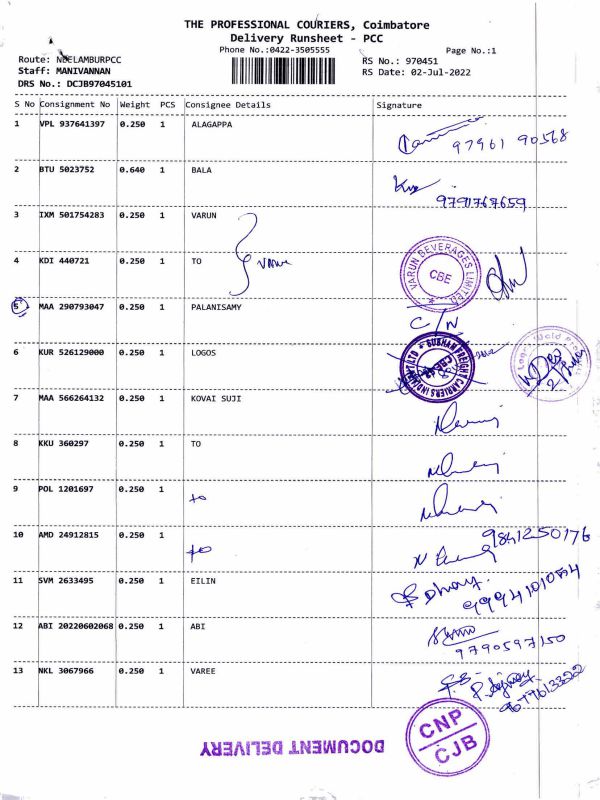 THE PROFESSIONAL COURIERS, Coimbatore
Delivery Runsheet - PCC
Phone No.:0422-3505555
Page No.:1
Route: NEELAMBURPCC
RS No.: 970451
Staff: MANIVANNAN
RS Date: 02-Jul-2022
DRS No.: DCJB97045101
S No Consignment No Weight PCS Consignee Details Signature
1 VPL 937641397 0.250 1 ALAGAPPA
97961 90568
2 BTU 5023752 0.640 1 BALA
9791767659
3 IXM 501754283 0.250 1 VARUN
4 KDI 440721 0.250 1 TO
VARUN BEVERAGES LIMITED
CBE
5 MAA 290793047 0.250 1 PALANISAMY
C/N
6 KUR 526129000 0.250 1 LOGOS
SUBHAM FREIGHT CARRIERS INDIA PVT LTD
7 MAA 566264132 0.250 1 KOVAI SUJI
8 KKU 360297 0.250 1 TO
9 POL 1201697 0.250 1 to
10 AMD 24912815 0.250 1 to
9841250176
11 SVM 2633495 0.250 1 EILIN
12 ABI 20220602068 0.250 1 ABI
9790597150
13 NKL 3067966 0.250 1 VAREE
CNP
CJB
DOCUMENT DELIVERY